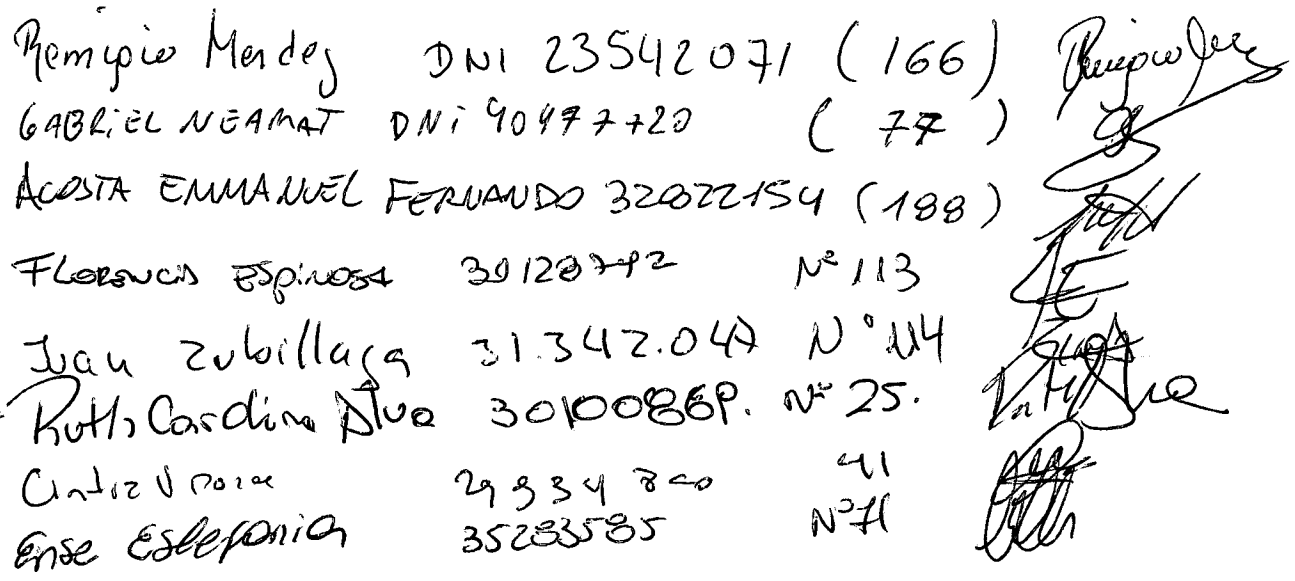 Remigio Mendez DNI 23542071 (166)
GABRIEL NEAMAT DNI 40477720 (77)
ACOSTA EMMANUEL FERNANDO 32822154 (188)
FLORENCIA ESPINOSA Nº 113
Juan Zubillaga 31.342.047 Nº 114
Ruth Carolina Alva Nº 25.
41
Ense Estefania 35283585 Nº 71